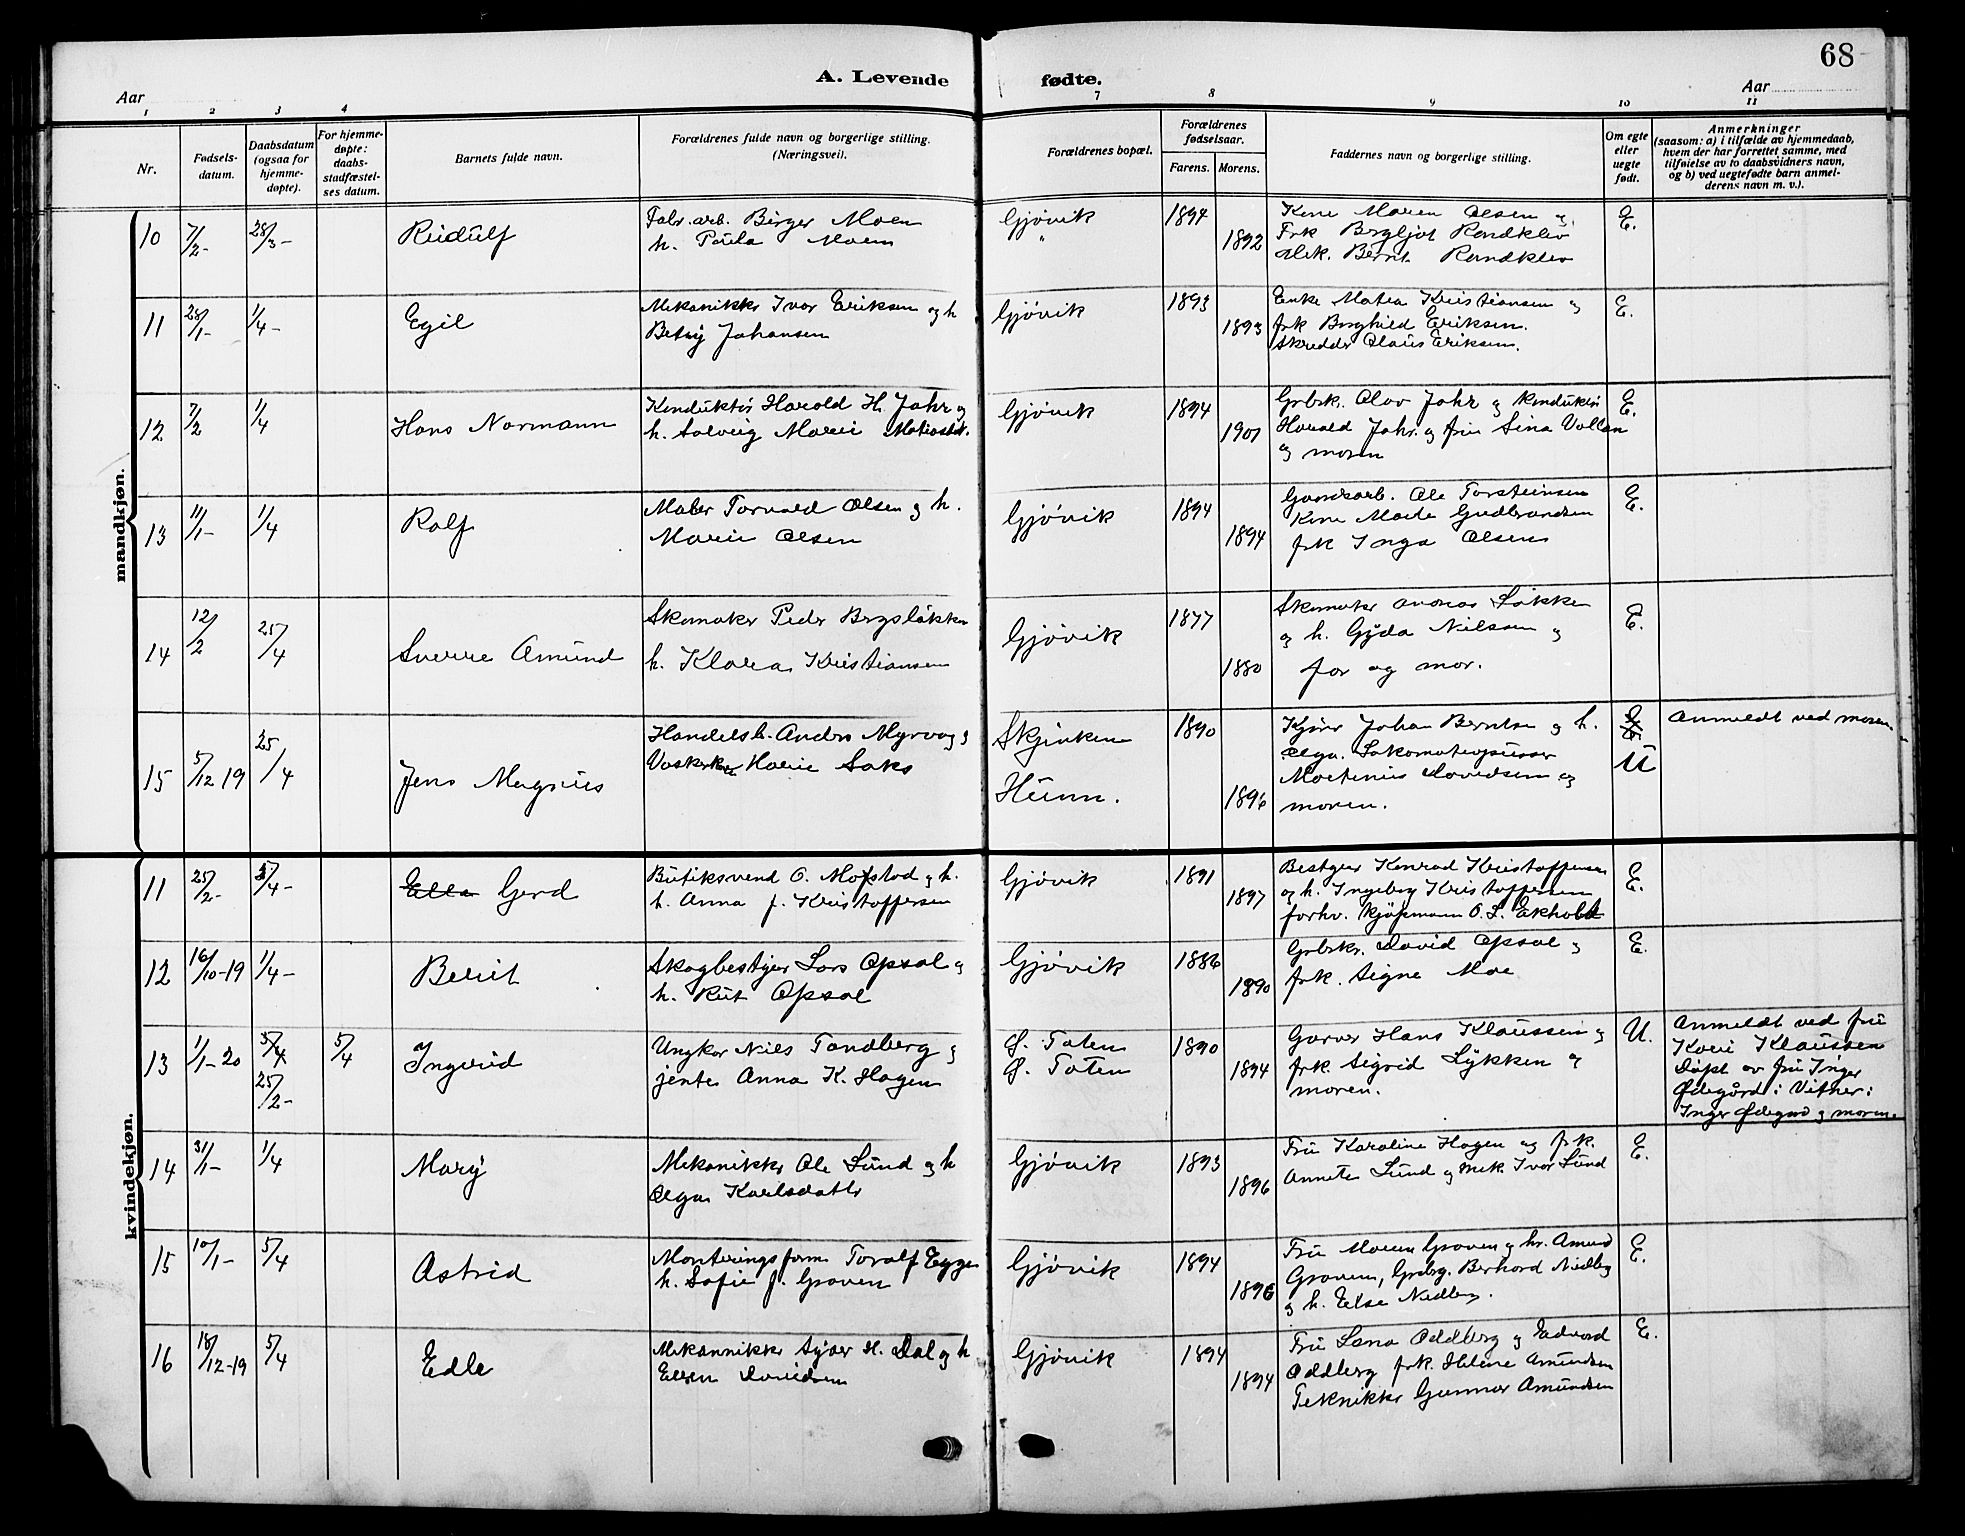 68
A. Levende fødte.
Aar
Aar
1 2 3 4 7 8 9 10 11
Nr.
Fødsels-
datum.
Daabsdatum
(ogsaa for
hjemme-
døpte).
For hjemme-
døpte:
daabs-
stadfæstel-
ses datum.
Barnets fulde navn.
Forældrenes fulde navn og borgerlige stilling.
(Næringsvei).
Forældrenes bopæl.
Forældrenes
fødselsaar.
Farens. Morens.
Faddernes navn og borgerlige stilling.
Om egte
eller
uegte
født.
Anmerkninger
(saasom: a) i tilfælde av hjemmedaab,
hvem der har forrettet samme, med
tilføielse av to daabsvidners navn,
og b) ved uegtefødte barn anmel-
derens navn m. v.).
mandkjøn.
10 7/2- 28/3- Reidulf
Fabr. arb. Birger Moen
h. Paula Moen
Gjøvik
"
1894
1892
Kone Maren Olsen og
Frk Bergljot Randklev
Mek. Bernt Randklev
E.
11 28/1- 1/4- Egil
Mekanikker Ivar Eriksen og h
Betsy Johansen
Gjøvik
1893
1893
Enke Matea Kristiansen og
frk Borghild Eriksen.
Skredder Olaus Eriksen.
E.
12 7/2 1/4 Hans Normann
Konduktør Harald H. Jahr og
h. Solveig Marie
Gjøvik
1894
1901
Grbrk. Olav Jahr og Konduktør
Harald Jahr. og fru Lina Vollan
og moren
E.
13 11/1- 1/4 Rolf
Maler Torvald Olsen og h.
Marie Olsen
Gjøvik
1894
1894
Gaardsarb. Ole Torsteinsen
Kone Marte Gudbrandsen
frk Inga Olsen
E.
14 12/2 25/4 Sverre Amund
Skomaker Peder Bergsløkken
h. Klara Kristiansen
Gjøvik
1877
1880
Skomaker Løkken
og h. Gyda Nilsen og
far og mor.
E.
15 5/12 19 25/4 Jens Magnus
Handelsb. Anders Myrvang
Marie Saks
Skjerken
Hunn.
1890
1896
Kjører Johan Berntsen og h.
Olga. Lokomotivpusser
Martinius Davidsen og
moren.
E
U
Anmeldt ved moren
kvindekjøn.
11 25/2- 5/4- Ella Gerd
Butiksvend O. Mofstad og h.
h. Anna f. Kristoffersen
Gjøvik
1891
1897
Bestyrer Konrad Kristoffersen
og h. Ingeborg Kristoffersen
forhv. kjøpmann O. L. Ekholdt
E.
12 16/10-19 1/4- Berit
Skogbestyrer Lars Opsal og
h. Rut Opsal
Gjøvik
1886
1890
Grbrkr. David Opsal og
frk. Signe Moe
E.
13 1/1-20 5/4 25/2- 5/4 Ingrid
Ungkar Niels Tandberg og
jente Anna K. Hagen
Ø. Toten
Ø. Toten
1890
1894
Garver Hans Klaussen og
frk. Sigrid Lykken og
moren.
U.
Anmeldt ved fru
Kari Klaussen
Døpt av fru Inger
Ødegård: Vitner:
Inger Ødegård og moren.
14 31/1- 1/4 Mary
Mekanikker Ole Lund og h
Olga Karlsdatter
Gjøvik
1893
1896
Fru Karoline Hagen og frk.
Annette Lund og Mek. Ivar Lund
E.
15 10/1- 5/4 Astrid
Monteringsform Toralf Egge
h. Sofie f. Graven
Gjøvik
1894
1896
Fru Maren Graven og hr. Amund
Graven, Grbrg. Berhard Nedberg
og h. Else Nedberg.
E.
16 18/12-19 5/4 Edle
Mekannikker H. Dal og h
Ellen Davidsen
Gjøvik
1894
1894
Fru Lena Oddberg og Edvard
Oddberg frk. Helene Amundsen
Teknikker Gunnar Amundsen
E.